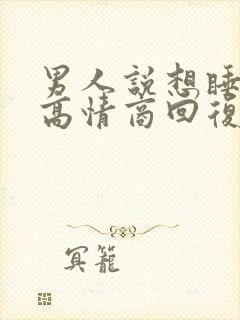 男人說想睡
高情商回復
冥籠